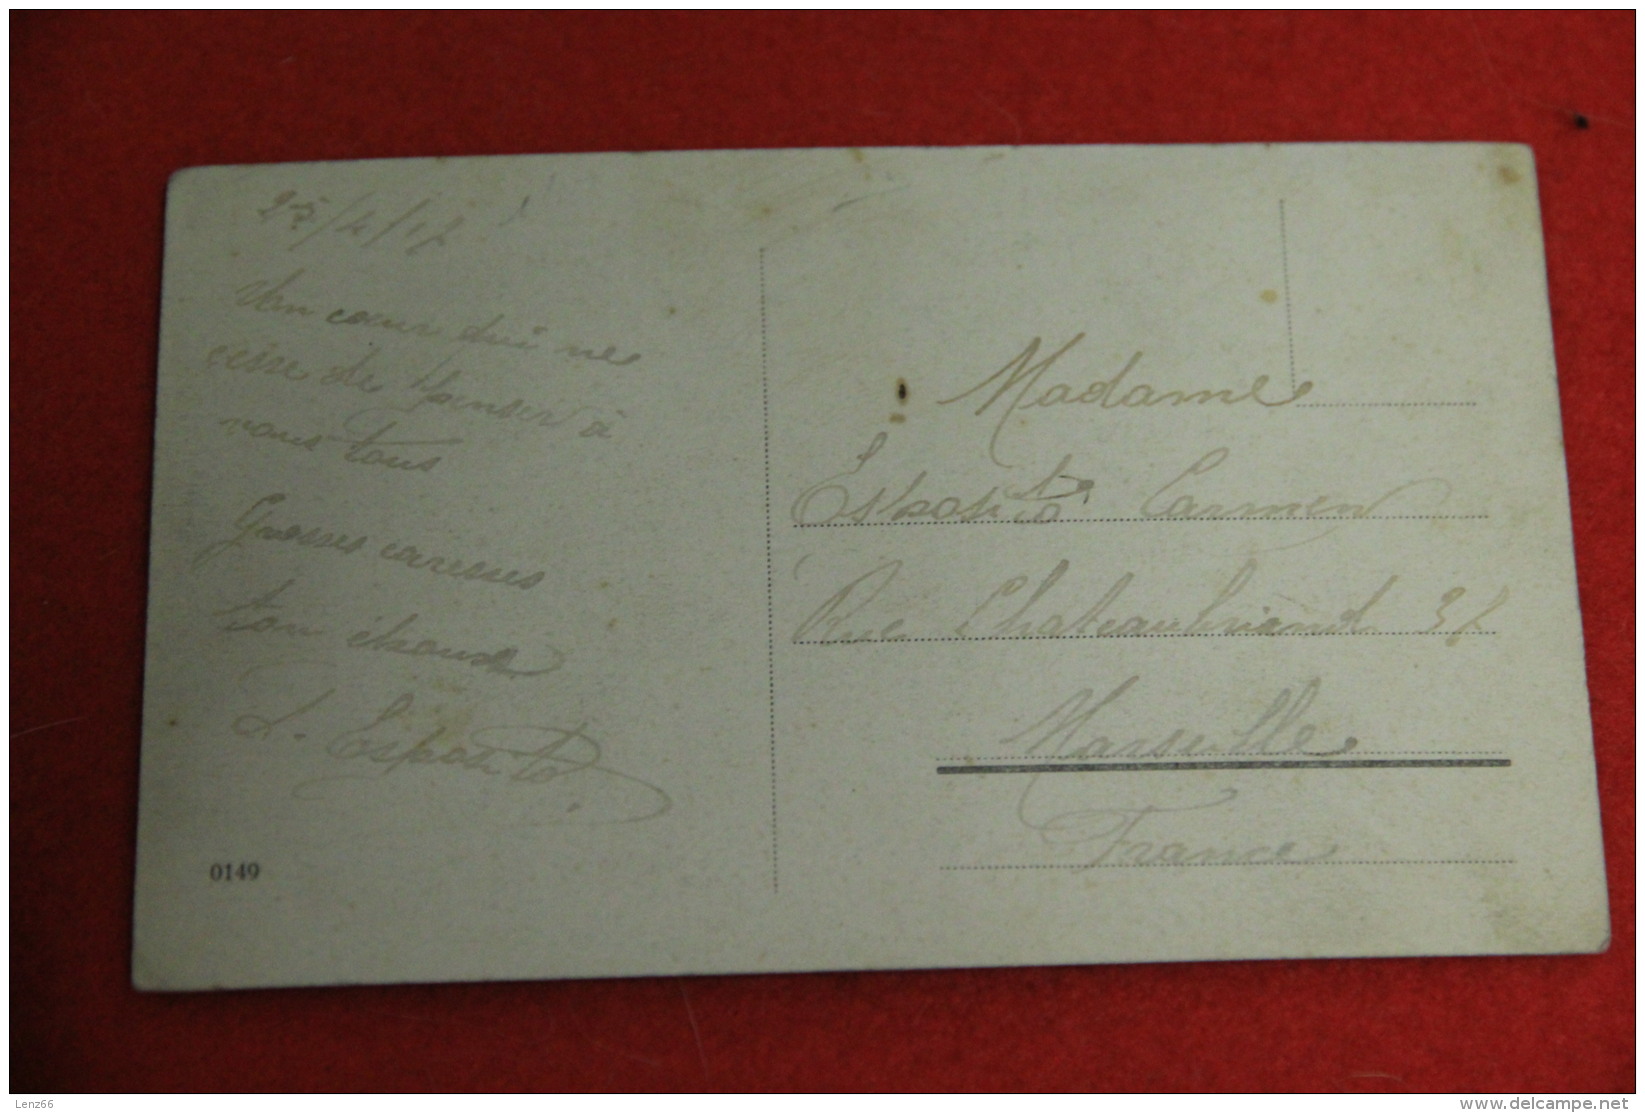 25/4/17
Un coeur qui ne
cesse de penser à
vous tous
Grosses caresses
ton épouse
Esposito
0149
Madame
Esposito Carmen
Rue Chateaubriand 37
Marseille
France
Lenz66
www.delcampe.net